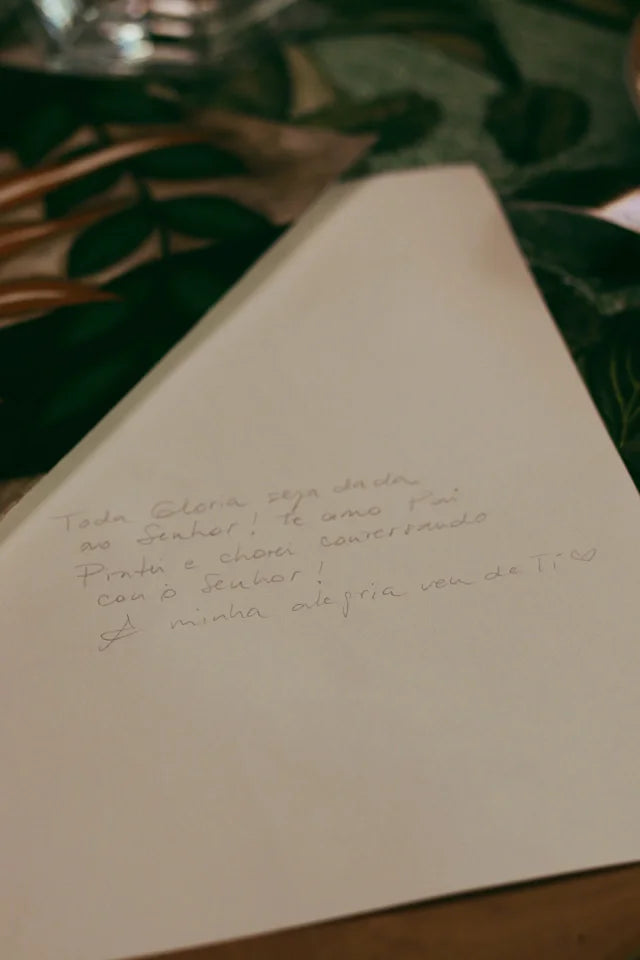 Toda Gloria seja dada
ao Senhor! Te amo Pai
Pintei e chorei conversando
con o Senhor!
A minha alegria vem de Ti ♡